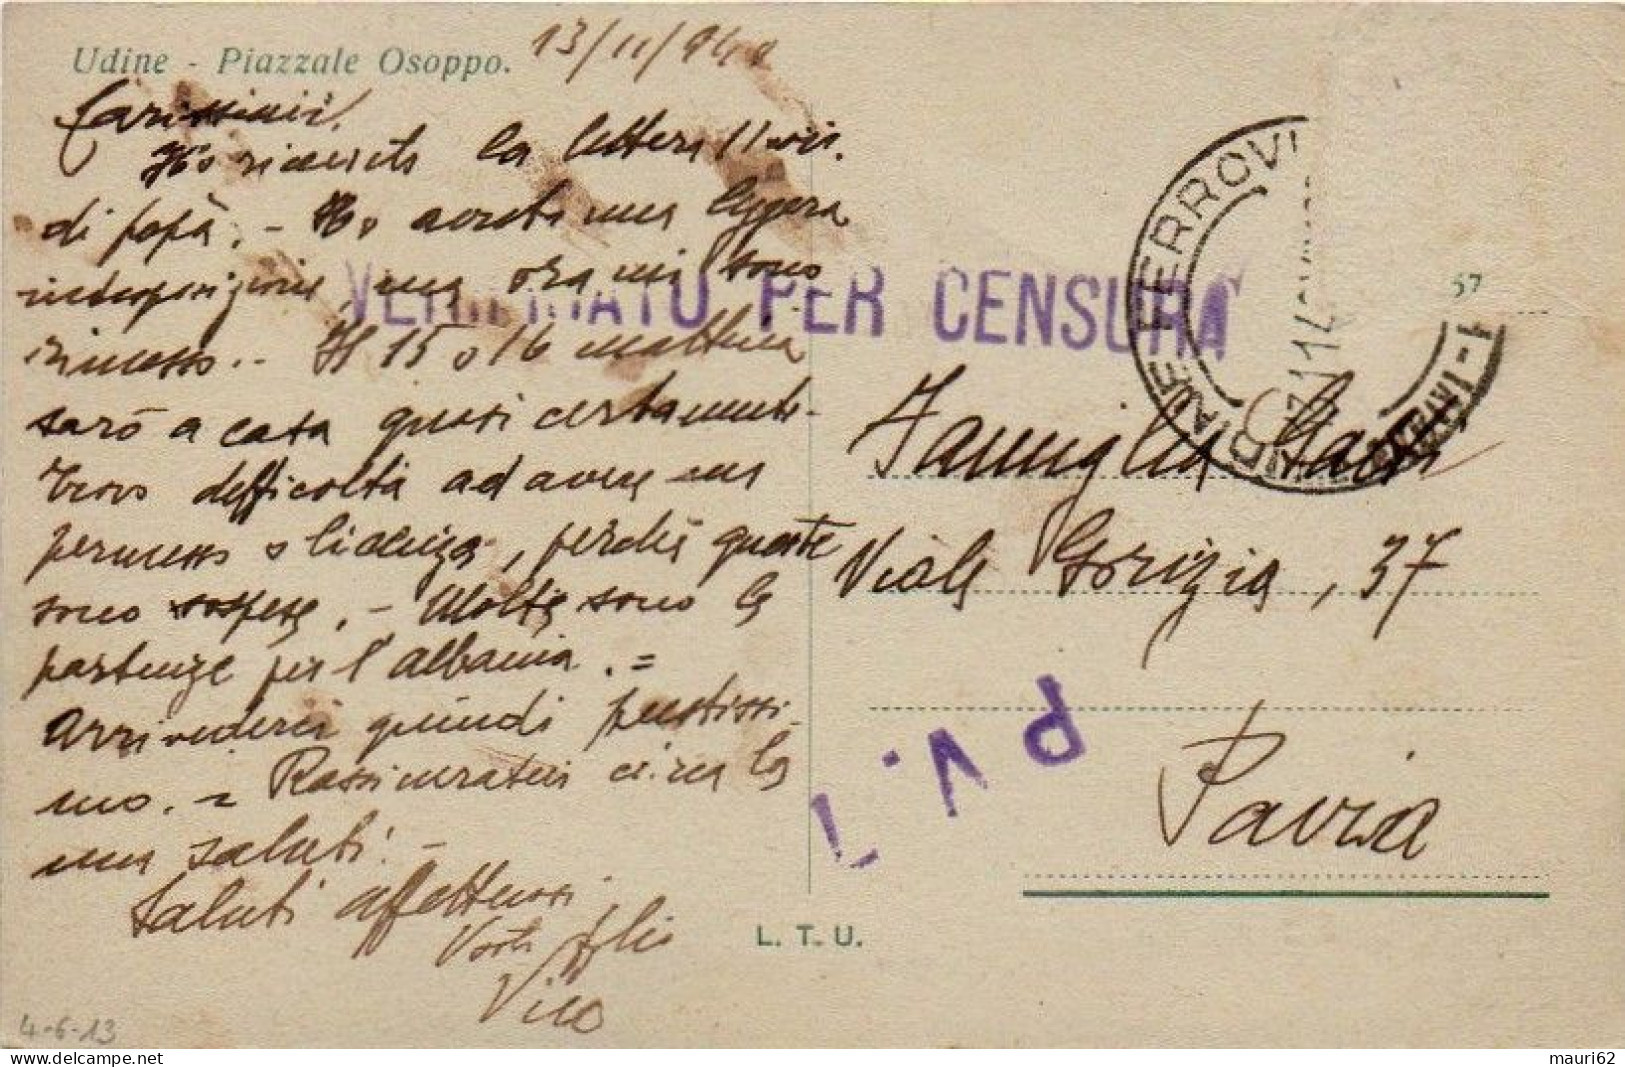 Udine - Piazzale Osoppo.
13/11/940
Carissimi.
Ho ricevuto la lettera 11 corr.
di papà. - Ho avuto una leggera
indisposizione, ma ora mi sono
rimesso. - Il 15 o 16 mattina
sarò a casa quasi certamente -
Trovo difficoltà ad avere un
permesso o licenza, perchè queste
sono sospese. - Molte sono le
partenze per l'albania. =
Arrivederci quindi prestissi-
mo. = Rassicuratevi circa la
mia salute. -
Saluti affettuosi
Vostro figlio
Vico
VERIFICATO PER CENSURA
UDINE FERROVIA
57
Famiglia
Viale Gorizia, 37
Pavia
L. T. U.
4-6-13
mauri62